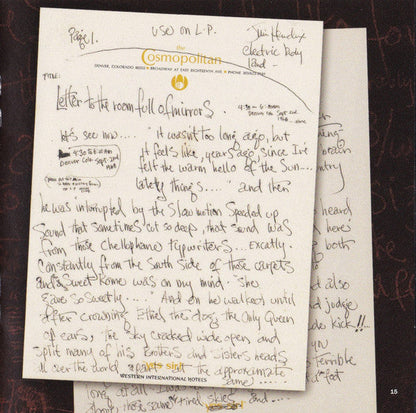 Page 1.
use on L.P.
Jimi Hendrix
electric lady
land
the
Cosmopolitan
DENVER, COLORADO 80202 • BROADWAY AT EAST EIGHTEENTH AVE • PHONE
Letter to the room full of mirrors.
4:30 - 6:00 AM
Denver Colo Sept. 2nd
1968
let's see now.... "It wasn't too long ago, but
4:30 to 6:00 AM
Denver Colo. Sept. 2nd
1968
it feels like, years ago, since I've
felt the warm hello of the Sun....
lately things....." and then
he was interrupted by the Slow motion Speeded up
Sound that sometimes cut so deep, that sound was
from those Chellophane typewriters... exactly.
Constantly from the South Side of those carpets
and Sweet home was on my mind. "She
gave so sweetly...." And on he walked until
after crowning Ethel the dog, the Only Queen
of ears, the Sky cracked wide open and
split many of his Brothers and Sisters heads
all over the world
at the approximate
same
WESTERN INTERNATIONAL HOTELS
heard
here
both
also
and judge
kick!!
you
terrible
foot
long
and
about those same tired skies and
15